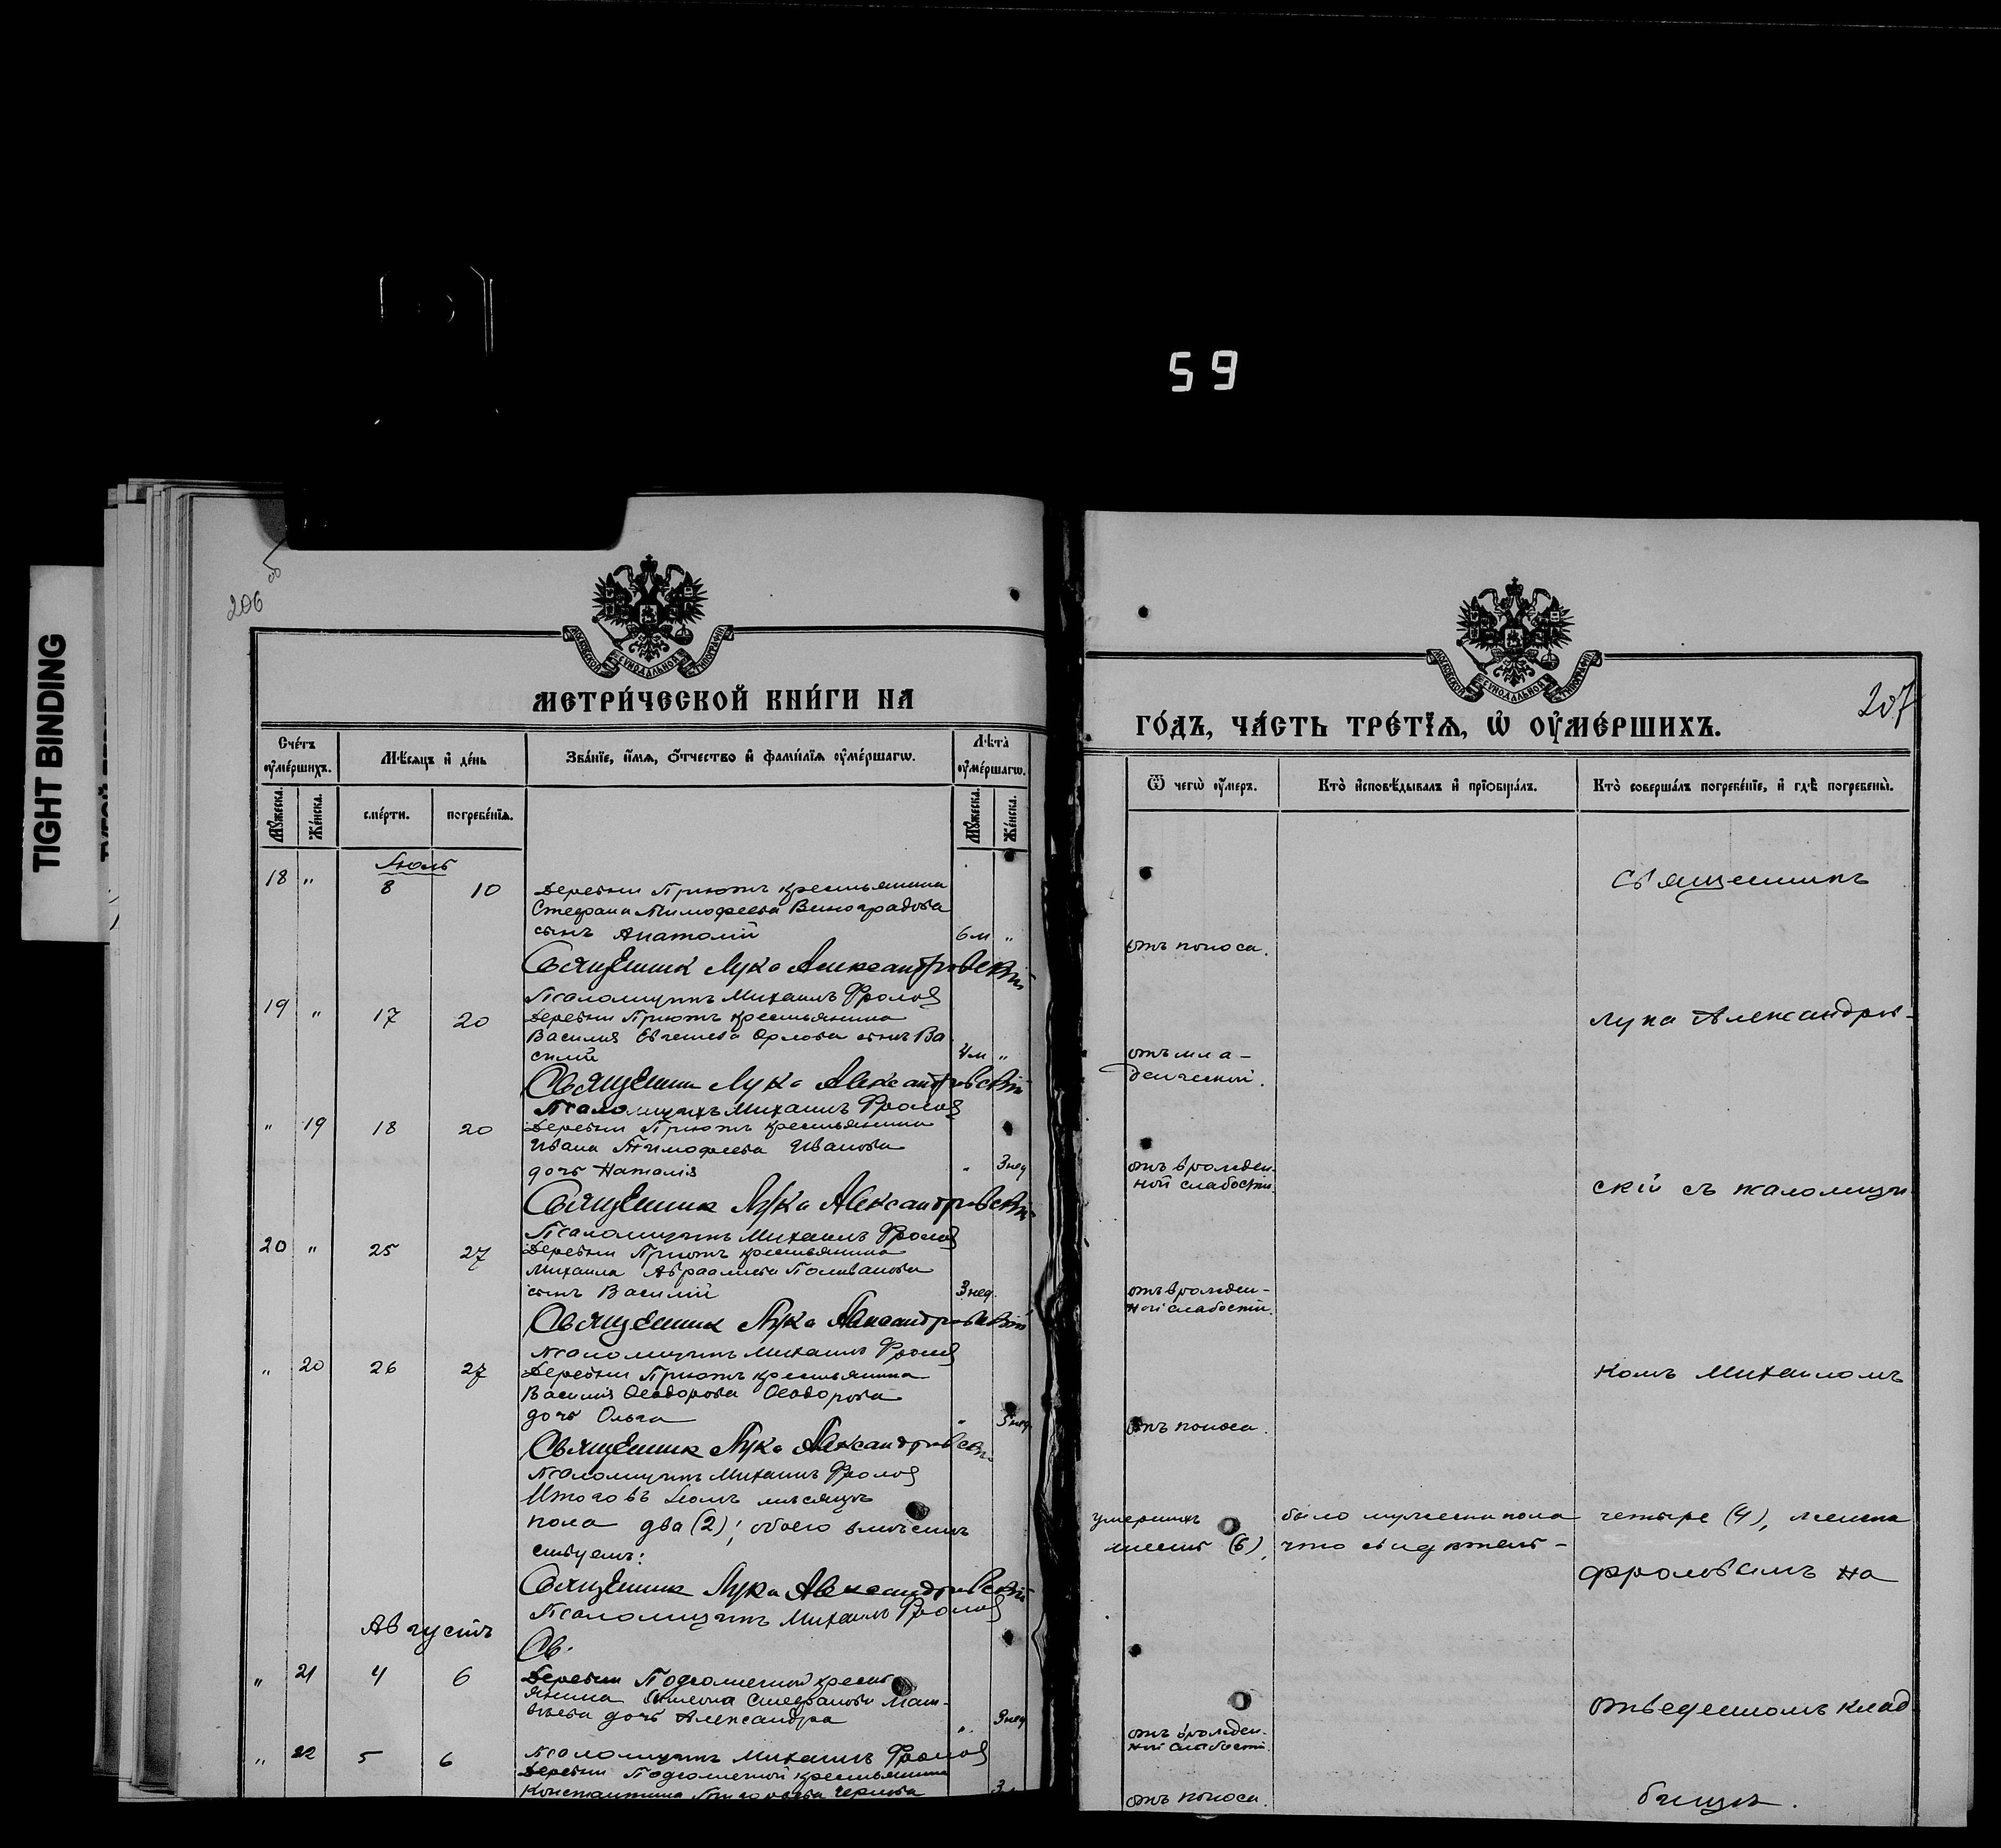 59
TIGHT BINDING
206 об
МОСКОВСКОЙ СУНОДАЛЬНОЙ ТИПОГРАФІИ
МЕТРИ́ЧЕСКОЙ КНИ́ГИ НА
Сче́тъ оу҆ме́ршихъ.
Мѣ́сяцъ и҆ де́нь
Зва́нїе, и҆́мя, ѻ҆́тчество и҆ фами́лїя оу҆ме́ршагѡ.
Лѣ́та оу҆ме́ршагѡ.
Му́жеска.
Же́нска.
сме́рти.
погребе́нїя.
Му́жеска.
Же́нска.
Іюль
18 " 8 10 Деревни Приютъ крестьянина
Стефана Тимофеева Виноградова
сынъ Анатолій 6 м "
Священник Лука Александровскій
Псаломщикъ Михаилъ Фролов
19 " 17 20 Деревни Приютъ крестьянина
Василия Евгениева Орлова сынъ Ва
силій 4 м "
Священник Лука Александровскій
Псаломщикъ Михаилъ Фролов
" 19 18 20 Деревни Приютъ крестьянина
Ивана Тимофеева Иванова
дочь Наталія " 3 нед
Священник Лука Александровскій
Псаломщикъ Михаилъ Фролов
20 " 25 27 Деревни Приютъ крестьянина
Михаила Авраамиева Поливанова
сынъ Василій 3 нед.
Священник Лука Александровскій
Псаломщикъ Михаилъ Фролов
" 20 26 27 Деревни Приютъ крестьянина
Василія Ѳеодорова Ѳеодорова
дочь Ольга " 5 нед.
Священник Лука Александровскій
Псаломщикъ Михаилъ Фролов
Итого въ Іюлѣ мѣсяцѣ
пола два (2); обоего вмѣстѣ
ствуемъ:
Священник Лука Александровскій
Псаломщикъ Михаилъ Фролов
Августъ
Св.
" 21 4 6 Деревни Подгоменной кресть
янина Степанова Мат-
вѣева дочь Александра " 3 нед
Псаломщикъ Михаилъ Фролов
" 22 5 6 Деревни Подгоменной крестьянина
Константина Чернова 3
207
МОСКОВСКОЙ СУНОДАЛЬНОЙ ТИПОГРАФІИ
ГО́ДЪ, ЧА́СТЬ ТРЕ́ТЇЯ, Ѡ҆ ОУ҆МЕ́РШИХЪ.
Ѿ чегѡ̀ оу҆́меръ.
Кто̀ и҆сповѣ́дывалъ и҆ прїѡбща́лъ.
Кто̀ соверша́лъ погребе́нїе, и҆ гдѣ̀ погребены̀.
Священникъ
отъ поноса.
Лука Александров-
отъ мла-
денческой.
отъ врожден-
ной слабости.
скій съ псаломщи-
отъ врожден-
ной слабости.
комъ Михаиломъ
отъ поноса.
умершихъ было мужеска пола четыре (4), женска
шесть (6), что свидѣтель-
Фроловымъ на
отведенномъ клад
отъ врожден-
ной слабости.
отъ поноса.
бищѣ.